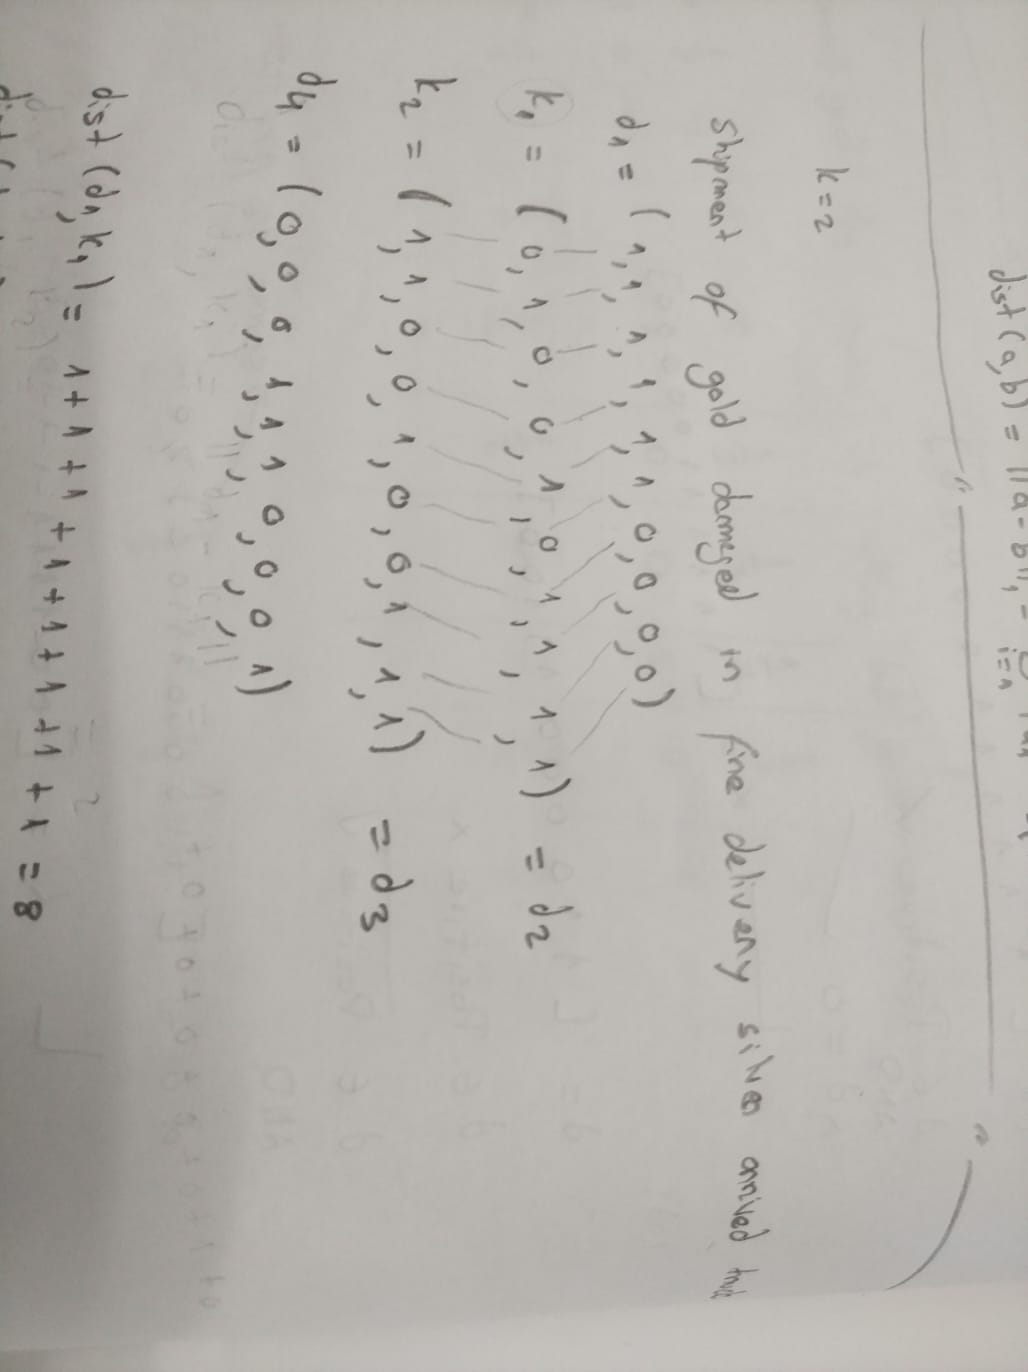 dist(a,b) = ||a-b||₁ =
i=1
k=2
shipment of gold dameged in fire delivery silver arrived truck
d₁ = (1,1,1,1,1,1,0,0,0,0)
k₁ = (0,1,0,0,1,0,1,1,1,1) = d₂
k₂ = (1,1,0,0,1,0,0,1,1,1) = d₃
d₄ = (0,0,0,1,1,1,0,0,0,1)
dist(d₁,k₁) = 1+1+1+1+1+1+1+1 = 8